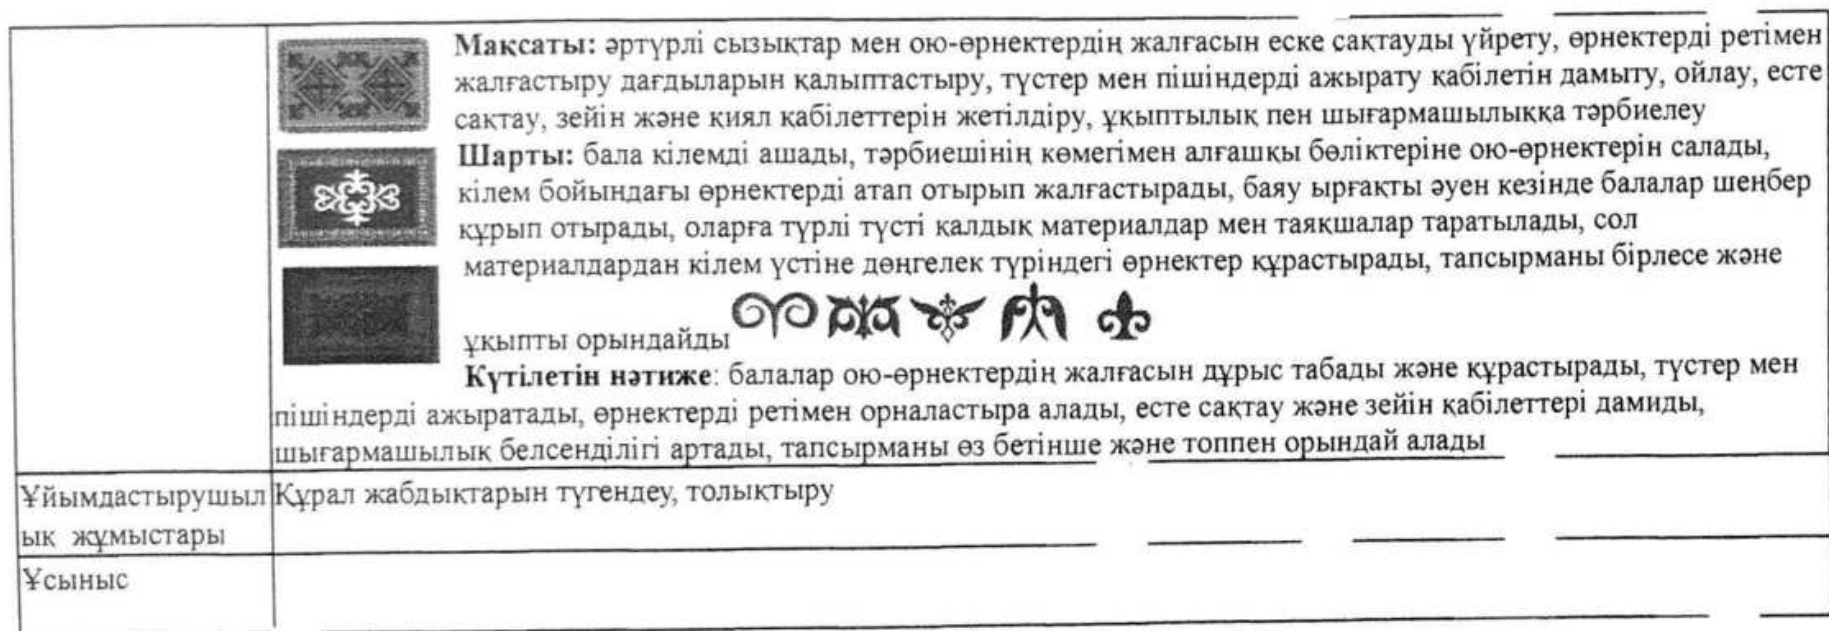 Мақсаты: әртүрлі сызықтар мен ою-өрнектердің жалғасын еске сақтауды үйрету, өрнектерді ретімен
жалғастыру дағдыларын қалыптастыру, түстер мен пішіндерді ажырату қабілетін дамыту, ойлау, есте
сақтау, зейін және қиял қабілеттерін жетілдіру, ұқыптылық пен шығармашылыққа тәрбиелеу
Шарты: бала кілемді ашады, тәрбиешінің көмегімен алғашқы бөліктеріне ою-өрнектерін салады,
кілем бойындағы өрнектерді атап отырып жалғастырады, баяу ырғақты әуен кезінде балалар шеңбер
құрып отырады, оларға түрлі түсті қалдық материалдар мен таяқшалар таратылады, сол
материалдардан кілем үстіне дөңгелек түріндегі өрнектер құрастырады, тапсырманы бірлесе және
ұқыпты орындайды
Күтілетін нәтиже: балалар ою-өрнектердің жалғасын дұрыс табады және құрастырады, түстер мен
пішіндерді ажыратады, өрнектерді ретімен орналастыра алады, есте сақтау және зейін қабілеттері дамиды,
шығармашылық белсенділігі артады, тапсырманы өз бетінше және топпен орындай алады
Ұйымдастырушыл
ық жұмыстары
Құрал жабдықтарын түгендеу, толықтыру
Ұсыныс